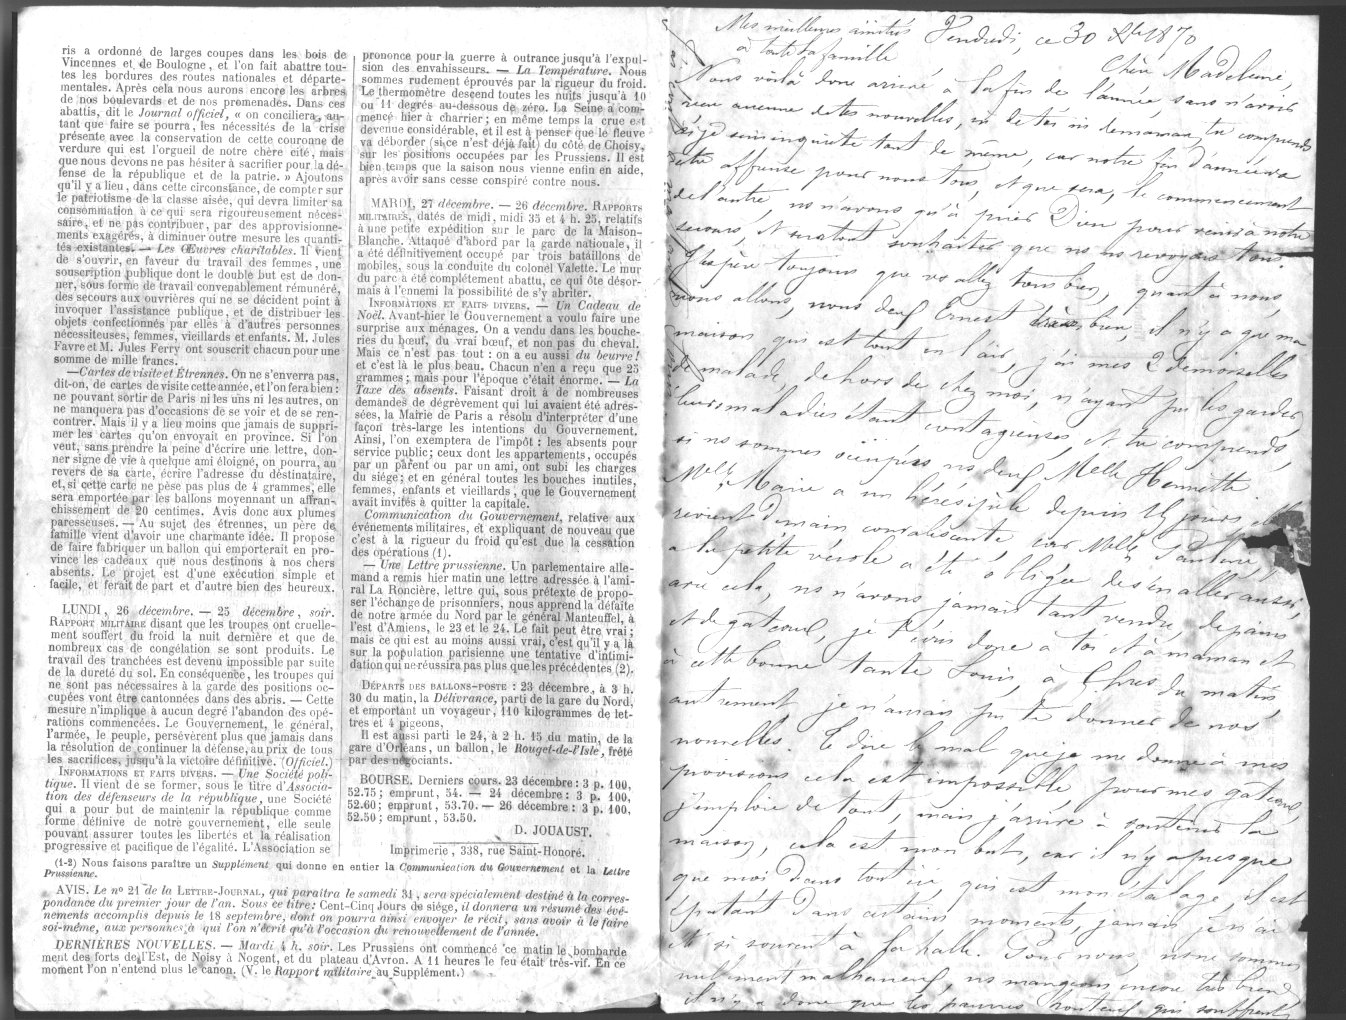 ris a ordonné de larges coupes dans les bois de
Vincennes et de Boulogne, et l'on fait abattre tou-
tes les bordures des routes nationales et départe-
mentales. Après cela nous aurons encore les arbres
de nos boulevards et de nos promenades. Dans ces
abattis, dit le Journal officiel, « on conciliera, au-
tant que faire se pourra, les nécessités de la crise
présente avec la conservation de cette couronne de
verdure qui est l'orgueil de notre chère cité, mais
que nous devons ne pas hésiter à sacrifier pour la dé-
fense de la république et de la patrie. » Ajoutons
qu'il y a lieu, dans cette circonstance, de compter sur
le patriotisme de la classe aisée, qui devra limiter sa
consommation à ce qui sera rigoureusement néces-
saire, et ne pas contribuer, par des approvisionne-
ments exagérés, à diminuer outre mesure les quanti-
tés existantes. — Les Œuvres charitables. Il vient
de s'ouvrir, en faveur du travail des femmes, une
souscription publique dont le double but est de don-
ner, sous forme de travail convenablement rémunéré,
des secours aux ouvrières qui ne se décident point à
invoquer l'assistance publique, et de distribuer les
objets confectionnés par elles à d'autres personnes
nécessiteuses, femmes, vieillards et enfants. M. Jules
Favre et M. Jules Ferry ont souscrit chacun pour une
somme de mille francs.
— Cartes de visite et Étrennes. On ne s'enverra pas,
dit-on, de cartes de visite cette année, et l'on fera bien :
ne pouvant sortir de Paris ni les uns ni les autres, on
ne manquera pas d'occasions de se voir et de se ren-
contrer. Mais il y a lieu moins que jamais de suppri-
mer les cartes qu'on envoyait en province. Si l'on
veut, sans prendre la peine d'écrire une lettre, don-
ner signe de vie à quelque ami éloigné, on pourra, au
revers de sa carte, écrire l'adresse du destinataire,
et, si cette carte ne pèse pas plus de 4 grammes, elle
sera emportée par les ballons moyennant un affran-
chissement de 20 centimes. Avis donc aux plumes
paresseuses. — Au sujet des étrennes, un père de
famille vient d'avoir une charmante idée. Il propose
de faire fabriquer un ballon qui emporterait en pro-
vince les cadeaux que nous destinons à nos chers
absents. Le projet est d'une exécution simple et
facile, et ferait de part et d'autre bien des heureux.
LUNDI, 26 décembre. — 25 décembre, soir.
RAPPORT MILITAIRE disant que les troupes ont cruelle-
ment souffert du froid la nuit dernière et que de
nombreux cas de congélation se sont produits. Le
travail des tranchées est devenu impossible par suite
de la dureté du sol. En conséquence, les troupes qui
ne sont pas nécessaires à la garde des positions oc-
cupées vont être cantonnées dans des abris. — Cette
mesure n'implique à aucun degré l'abandon des opé-
rations commencées. Le Gouvernement, le général,
l'armée, le peuple, persévèrent plus que jamais dans
la résolution de continuer la défense, au prix de tous
les sacrifices, jusqu'à la victoire définitive. (Officiel.)
INFORMATIONS ET FAITS DIVERS. — Une Société poli-
tique. Il vient de se former, sous le titre d'Associa-
tion des défenseurs de la république, une Société
qui a pour but de maintenir la république comme
forme définive de notre gouvernement, elle seule
pouvant assurer toutes les libertés et la réalisation
progressive et pacifique de l'égalité. L'Association se
prononce pour la guerre à outrance jusqu'à l'expul-
sion des envahisseurs. — La Température. Nous
sommes rudement éprouvés par la rigueur du froid.
Le thermomètre descend toutes les nuits jusqu'à 10
ou 11 degrés au-dessous de zéro. La Seine a com-
mencé hier à charrier; en même temps la crue est
devenue considérable, et il est à penser que le fleuve
va déborder (si ce n'est déjà fait) du côté de Choisy,
sur les positions occupées par les Prussiens. Il est
bien temps que la saison nous vienne enfin en aide,
après avoir sans cesse conspiré contre nous.
MARDI, 27 décembre. — 26 décembre. RAPPORTS
MILITAIRES, datés de midi, midi 35 et 4 h. 25, relatifs
à une petite expédition sur le parc de la Maison-
Blanche. Attaqué d'abord par la garde nationale, il
a été définitivement occupé par trois bataillons de
mobiles, sous la conduite du colonel Valette. Le mur
du parc a été complétement abattu, ce qui ôte désor-
mais à l'ennemi la possibilité de s'y abriter.
INFORMATIONS ET FAITS DIVERS. — Un Cadeau de
Noël. Avant-hier le Gouvernement a voulu faire une
surprise aux ménages. On a vendu dans les bouche-
ries du bœuf, du vrai bœuf, et non pas du cheval.
Mais ce n'est pas tout : on a eu aussi du beurre!
et c'est là le plus beau. Chacun n'en a reçu que 25
grammes; mais pour l'époque c'était énorme. — La
Taxe des absents. Faisant droit à de nombreuses
demandes de dégrèvement qui lui avaient été adres-
sées, la Mairie de Paris a résolu d'interpréter d'une
façon très-large les intentions du Gouvernement.
Ainsi, l'on exemptera de l'impôt : les absents pour
service public; ceux dont les appartements, occupés
par un parent ou par un ami, ont subi les charges
du siége; et en général toutes les bouches inutiles,
femmes, enfants et vieillards, que le Gouvernement
avait invités à quitter la capitale.
Communication du Gouvernement, relative aux
événements militaires, et expliquant de nouveau que
c'est à la rigueur du froid qu'est due la cessation
des opérations (1).
— Une Lettre prussienne. Un parlementaire alle-
mand a remis hier matin une lettre adressée à l'ami-
ral La Roncière, lettre qui, sous prétexte de propo-
ser l'échange de prisonniers, nous apprend la défaite
de notre armée du Nord par le général Manteuffel, à
l'est d'Amiens, le 23 et le 24. Le fait peut être vrai;
mais ce qui est au moins aussi vrai, c'est qu'il y a là
sur la population parisienne une tentative d'intimi-
dation qui ne réussira pas plus que les précédentes (2).
DÉPARTS DES BALLONS-POSTE : 23 décembre, à 3 h.
30 du matin, la Délivrance, parti de la gare du Nord,
et emportant un voyageur, 110 kilogrammes de let-
tres et 4 pigeons,
Il est aussi parti le 24, à 2 h. 15 du matin, de la
gare d'Orléans, un ballon, le Rouget-de-l'Isle, frété
par des négociants.
BOURSE. Derniers cours. 23 décembre : 3 p. 100,
52.75; emprunt, 54. — 24 décembre : 3 p. 100,
52.60; emprunt, 53.70. — 26 décembre : 3 p. 100,
52.50; emprunt, 53.50.
D. JOUAUST.
Imprimerie, 338, rue Saint-Honoré.
(1-2) Nous faisons paraître un Supplément qui donne en entier la Communication du Gouvernement et la Lettre
Prussienne.
AVIS. Le nº 21 de la LETTRE-JOURNAL, qui paraîtra le samedi 31, sera spécialement destiné à la corres-
pondance du premier jour de l'an. Sous ce titre : Cent-Cinq Jours de siége, il donnera un résumé des évé-
nements accomplis depuis le 18 septembre, dont on pourra ainsi envoyer le récit, sans avoir à le faire
soi-même, aux personnes à qui l'on n'écrit qu'à l'occasion du renouvellement de l'année.
DERNIÈRES NOUVELLES. — Mardi 4 h. soir. Les Prussiens ont commencé ce matin le bombarde
ment des forts de l'Est, de Noisy à Nogent, et du plateau d'Avron. A 11 heures le feu était très-vif. En ce
moment l'on n'entend plus le canon. (V. le Rapport militaire au Supplément.)
Mes meilleures amitiés
à toute ta famille
Vendredi, ce 30 Xbre 1870
Chère Madeleine,
Nous voilà donc arrivé à la fin de l'année sans n'avoir
reçu aucune de tes nouvelles, ni de toi ni de maman, tu comprends
si je suis inquiète tout de même, car notre fin d'année va
être affreuse pour nous tous, et que sera, le commencement
de l'autre ns n'avons qu'à prier Dieu pour venir à notre
secours, et surtout souhaiter que ns ns revoyions tous.
J'espère toujours que vs allez tous bien, quant à nous
nous allons, nous deux Ernest bien, il n'y a que ma
maison qui est tout en l'air, j'ai mes 2 demoiselles
de malade, dehors de chez moi, n'ayant pu les garder,
leurs maladies étant contagieuses, et tu comprends,
si ns sommes occupés ns deux Melle Henriette
Melle Marie a un hérésipèle depuis 15 jours, elle
revient demain convalescente, car Melle Pauline,
a la petite vérole a été obligée de s'en aller aussi,
avec cela, ns n'avons jamais tant vendu de pains
et de gateaux, je t'écris donc à toi et à maman et
à cette bonne tante Louis, à 5 hres du matin
autrement je n'aurais pu te donner de nos
nouvelles. Te dire le mal que je me donne à mes
provisions cela est impossible pour mes gateaux,
j'emploie de tout, mais j'arrive à soutenir la
maison, cela est mon but, car il n'y a presque
que moi dans tout ici, qui est mon étalage, il est
épatant dans certains moments, jamais je n'ai
été si souvent à la halle. Pour nous, ns ne sommes
nullement malheureux, ns mangeons encore très bien
il n'y a donc que les pauvres qui souffrent